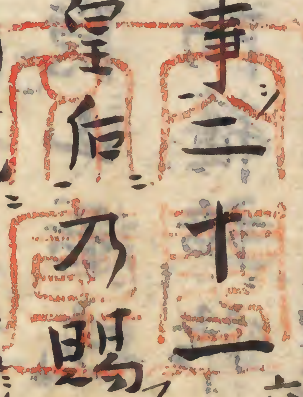 事二十一
皇后乃賜